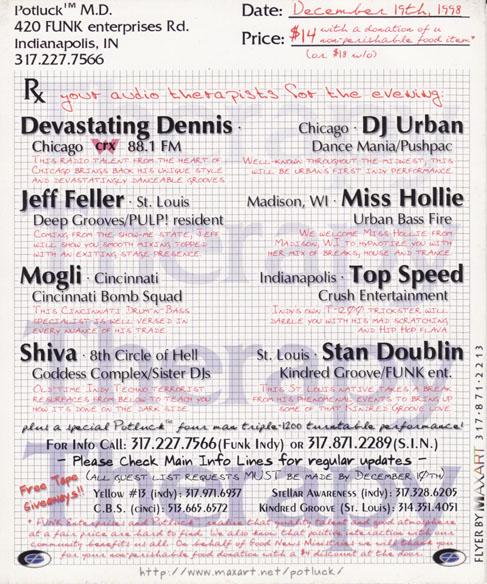 Potluck™ M.D.
420 FUNK enterprises Rd.
Indianapolis, IN
317.227.7566
Date: December 19th, 1998
Price: $14 with a donation of a non-perishable food item*
(or $18 w/o)
Rx your audio therapists for the evening:
Devastating Dennis ·
Chicago crx 88.1 FM
This radio talent from the heart of
Chicago brings back his unique style
and devastatingly danceable grooves
Chicago · DJ Urban
Dance Mania/Pushpac
Well-known throughout the midwest, this
will be Urban's first Indy performance.
Jeff Feller · St. Louis
Deep Grooves/PULP! resident
Coming from the show-me state, Jeff
will show you smooth mixing topped
with an exiting stage presence.
Madison, WI · Miss Hollie
Urban Bass Fire
We welcome Miss Hollie from
Madison, WI to hypnotize you with
her mix of breaks, house and trance
Mogli · Cincinnati
Cincinnati Bomb Squad
This Cincinnati Drum-n-Bass
specialist is well versed in
every nuance of his trade
Indianapolis · Top Speed
Crush Entertainment
Indy's own T-1200 trickster will
dazzle you with his mad scratching,
and hip hop flava
Shiva · 8th Circle of Hell
Goddess Complex/Sister DJs
Old-time Indy Techno terrorist
resurfaces from below to teach you
how it's done on the dark side
St. Louis · Stan Doublin
Kindred Groove/FUNK ent.
This St Louis native takes a break
from his phenomenal events to bring up
some of that Kindred Groove love
plus a special Potluck™ four man triple-1200 turntable performance!
For Info Call: 317.227.7566(Funk Indy) or 317.871.2289(S.I.N.)
- Please Check Main Info Lines for regular updates -
(All guest list requests MUST be made by December 10th)
Free Tape
Giveaways!!
Yellow #13 (indy): 317.971.6937
Stellar Awareness (indy): 317.328.6205
C.B.S. (cinci): 513.665.6572
Kindred Groove (St. Louis): 314.351.4051
* FUNK Enterprises and Potluck™ realize that quality talent and good atmosphere
at a fair price are hard to find. We also know that positive interaction with our
community benefits us all. On behalf of food Ministries we will thank you
for your non-perishable food donation with a $4 discount at the door.
http://www.maxart.net/potluck/
FLYER BY MAXART 317-871-2213
Therapy
Therapy
Therapy
Therapy